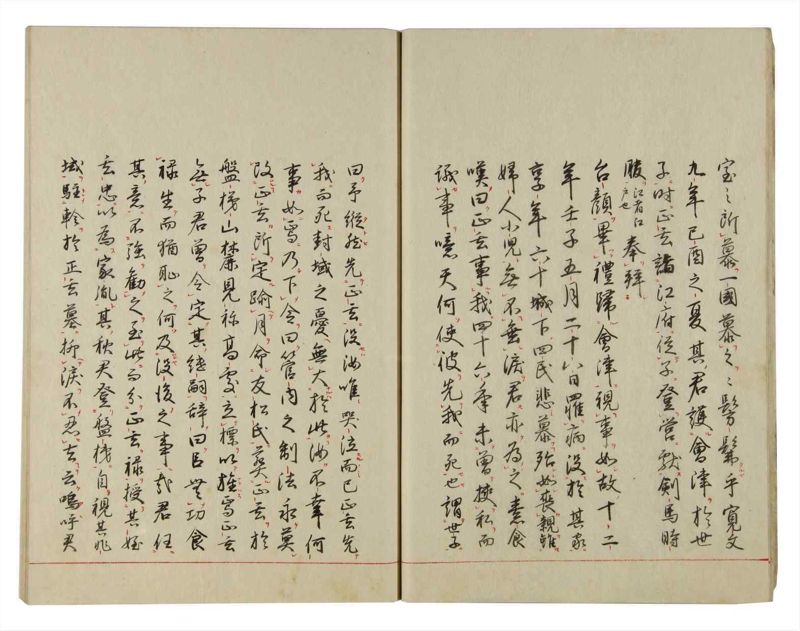 室之所慕一國慕之之髣髴乎寛文
九年己酉之夏其君護會津於世
子時正玄謁江府従子登営献劔馬時
服江府者江戸也奉拜
台顔畢禮歸會津視事如故十二
年壬子五月二十六日罹病没於其家
享年六十城下四民悲慕殆如喪親雖
婦人小児無不垂涙君亦為之素食
嘆曰正玄事我四十六年未曽挾私而
議事噫天何使彼先我而死也謂世子
曰予縦然先正玄没汝唯哭泣而已正玄先
我而死封域之憂無大於此汝不幸何
事如焉乃下令曰管内之制法永莫
改正玄所定踰月命友松氏葬正玄於
盤梯山麓見祢高處立標以旌焉正玄
無子君曽令定其継嗣辞曰臣無功食
禄生而猶恥之何及没後之事哉君任
其意不強勧之至此而分正玄禄授其姪
玄忠以為家胤其秋君登盤梯自視其兆
域駐軫於正玄墓抑涙不忍去云嗚呼君